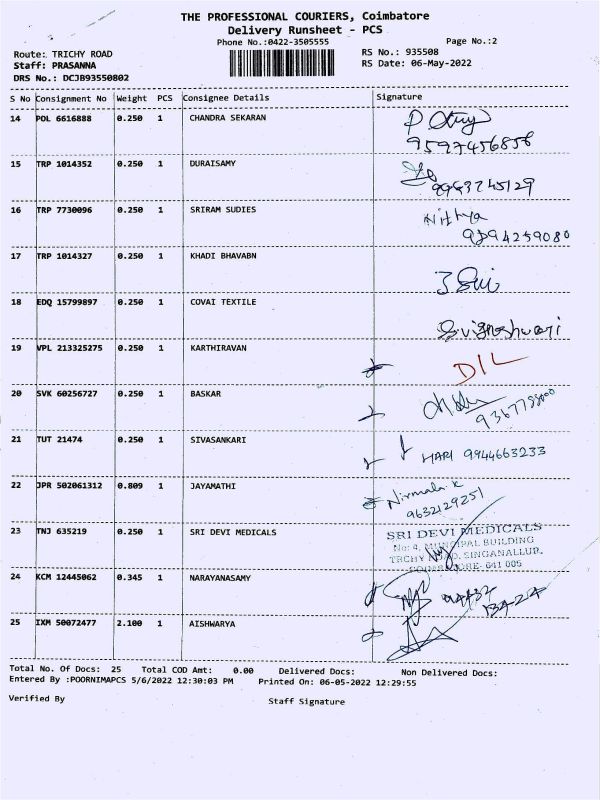 THE PROFESSIONAL COURIERS, Coimbatore
Delivery Runsheet - PCS
Phone No.:0422-3505555 Page No.:2
Route: TRICHY ROAD RS No.: 935508
Staff: PRASANNA RS Date: 06-May-2022
DRS No.: DCJB93550802
S No Consignment No Weight PCS Consignee Details Signature
14 POL 6616888 0.250 1 CHANDRA SEKARAN
9597456856
15 TRP 1014352 0.250 1 DURAISAMY
16 TRP 7730096 0.250 1 SRIRAM SUDIES Nithya
9394259080
17 TRP 1014327 0.250 1 KHADI BHAVABN
18 EDQ 15799897 0.250 1 COVAI TEXTILE
19 VPL 213325275 0.250 1 KARTHIRAVAN DIL
20 SVK 60256727 0.250 1 BASKAR
21 TUT 21474 0.250 1 SIVASANKARI HARI 9944663233
22 JPR 502061312 0.809 1 JAYAMATHI Nirmala K
9632129251
23 TNJ 635219 0.250 1 SRI DEVI MEDICALS SRI DEVI MEDICALS
No: 4, MUNICIPAL BUILDING
TRCHY ROAD, SINGANALLUR,
COIMBATORE- 641 005
24 KCM 12445062 0.345 1 NARAYANASAMY
25 IXM 50072477 2.100 1 AISHWARYA
Total No. Of Docs: 25 Total COD Amt: 0.00 Delivered Docs: Non Delivered Docs:
Entered By :POORNIMAPCS 5/6/2022 12:30:03 PM Printed On: 06-05-2022 12:29:55
Verified By Staff Signature